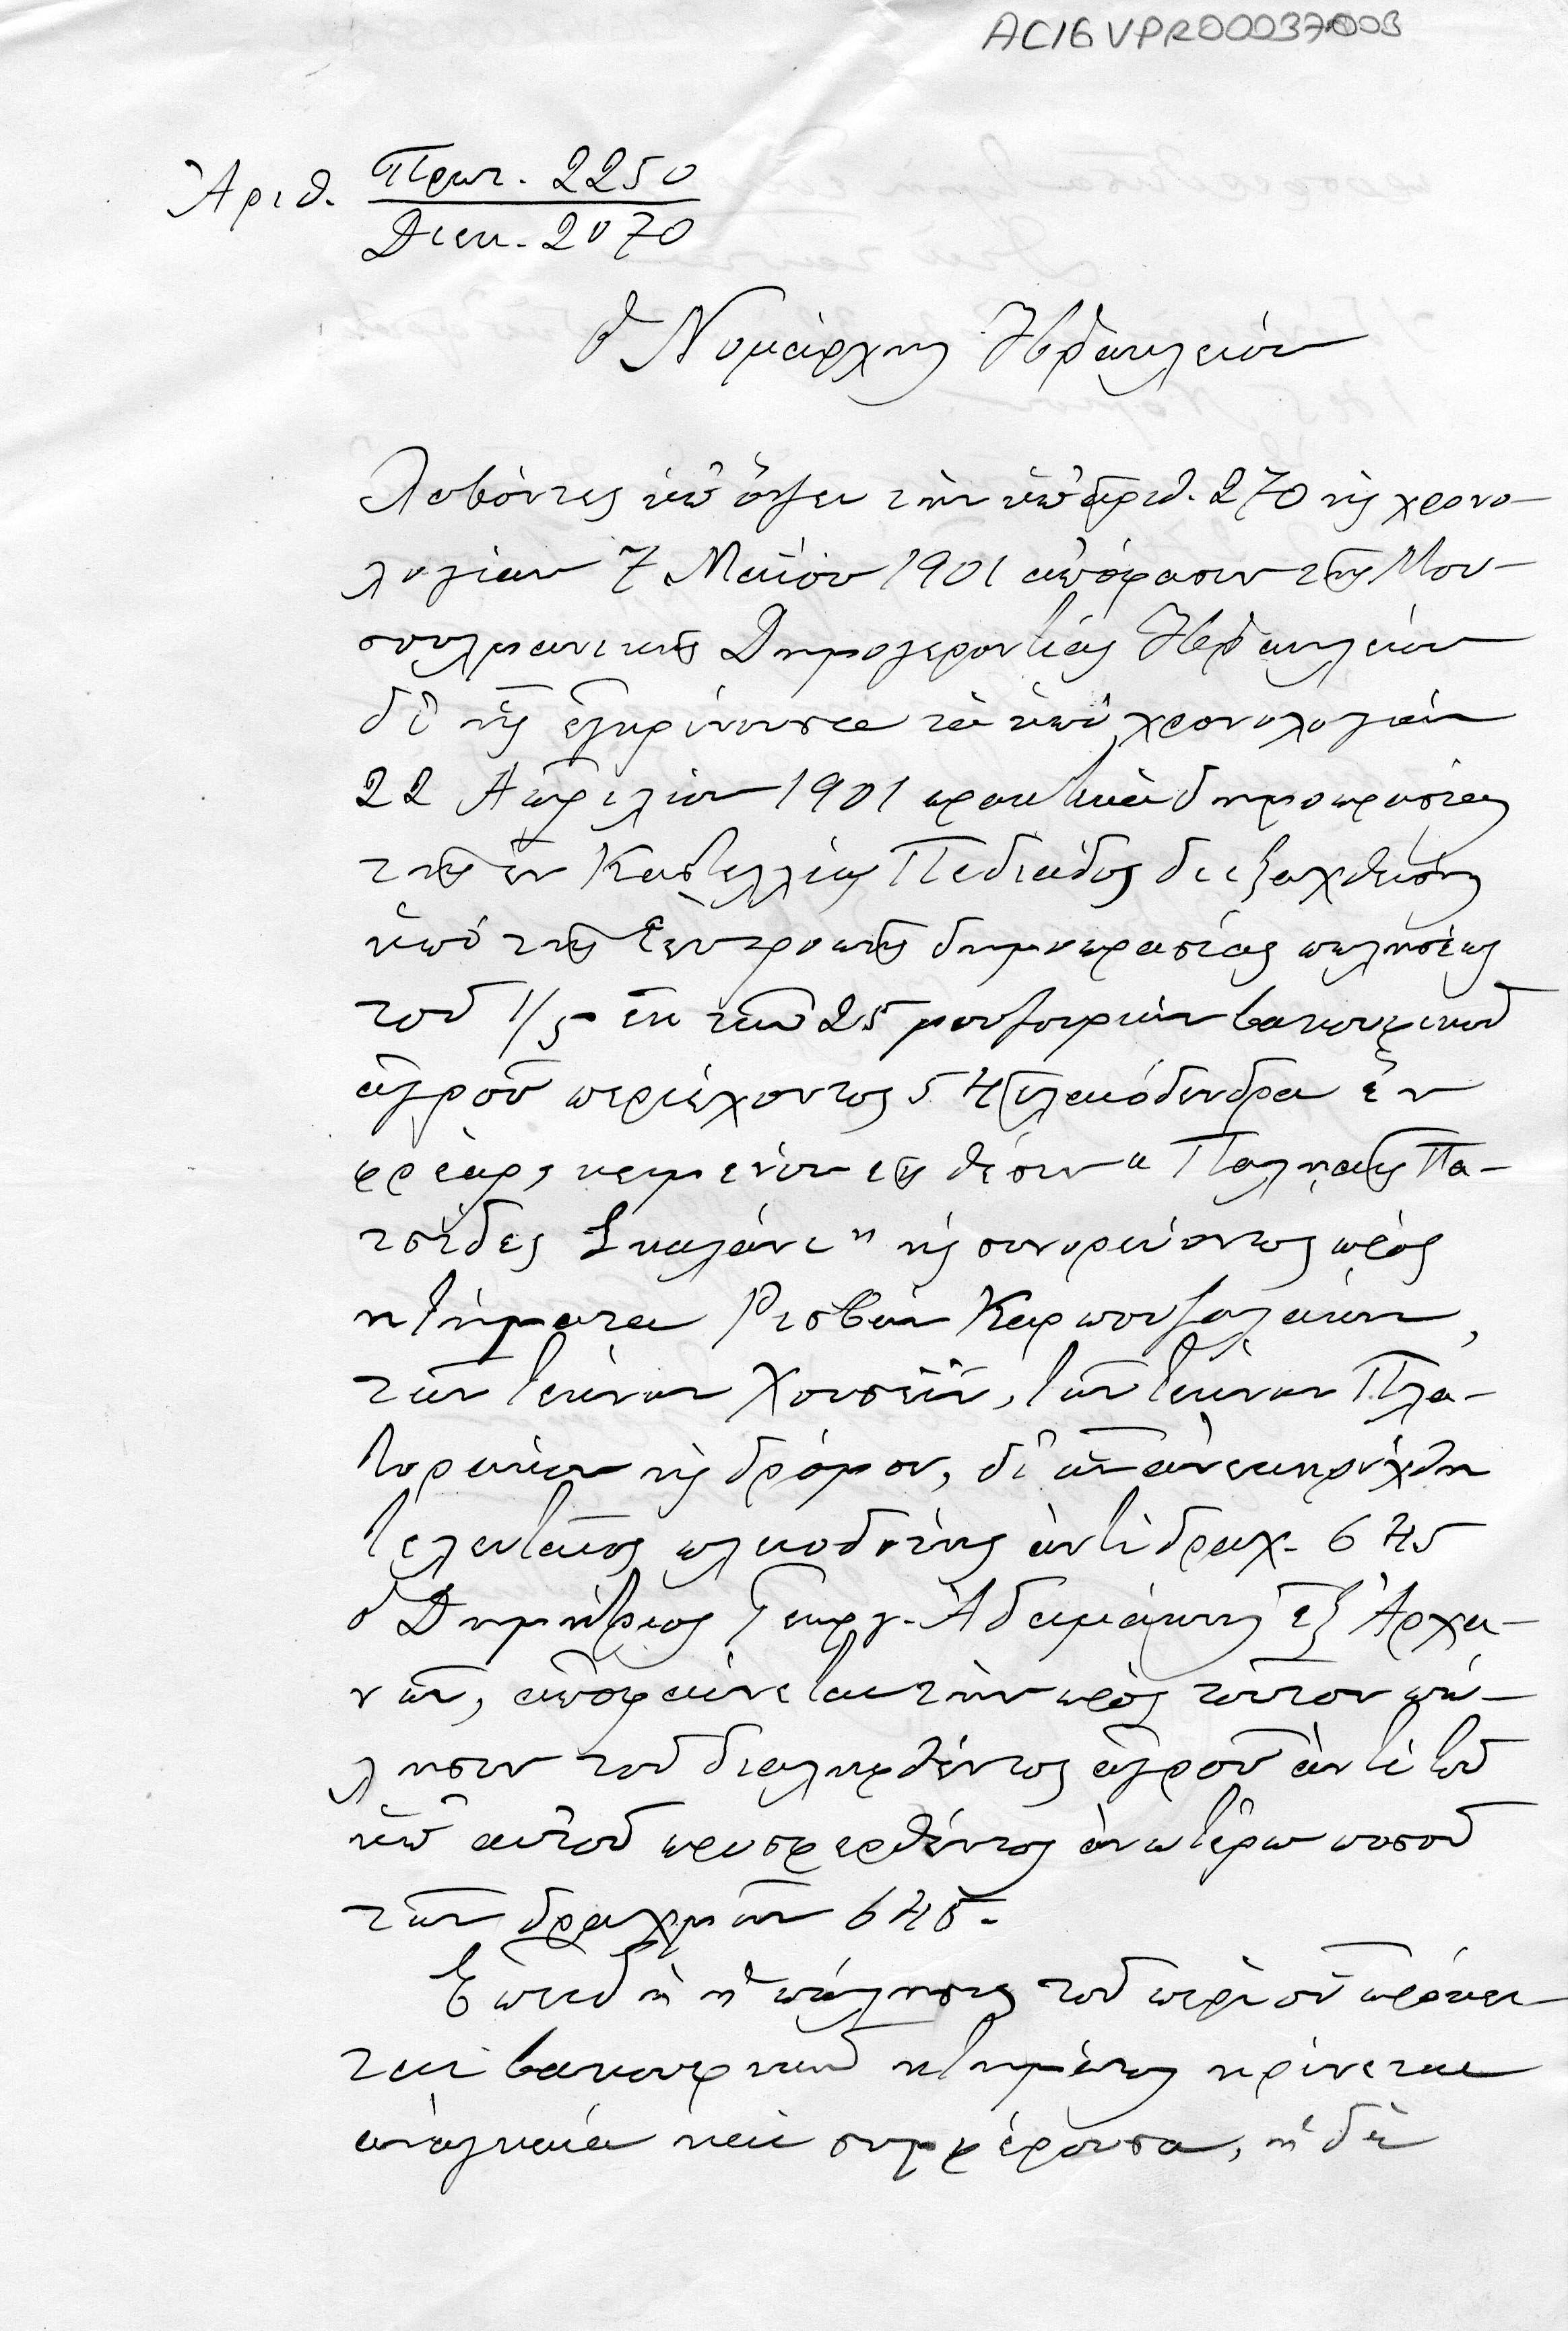 AC16VPR00037003
Ἀριθ. Πρωτ. 2250
Διεκ. 2070
Ὁ Νομάρχης Ἡρακλείου
Λαβόντες ὑπ' ὄψει τὴν ὑπ' ἀριθ. 270 κὴ χρονο-
λογίαν 7 Μαΐου 1901 ἀπόφασιν τῆς Μου-
σουλμανικῆς Δημογεροντίας Ἡρακλείου
δι' ἧς ἐγκρίνουσα τὰ ὑπὸ χρονολογίαν
22 Ἀπριλίου 1901 πρακτικὰ δημοπρασίας
τῆς ἐν Καστελλίῳ Πεδιάδος διεξαχθείσης
ὑπὸ τῆς Ἐπιτροπῆς δημοπρασίας πωλήσεως
τοῦ 1/5 ἐκ τῶν 25 μουζουρίων βακουφικοῦ
ἀγροῦ περιέχοντος 5 ἐλαιόδενδρα ἓν
φρέαρ, κειμένου εἰς θέσιν "
τσίδες Σκαλάνι" κὴ συνορεύοντος πρὸς
κτήματα Ρισβὰν Καρπουζαλάκη,
τῶν τέκνων Χουσεΐν, τῶν τέκνων Πλα-
κὴ δρόμον, δι' ὃν ἀνεκηρύχθη
τελευταῖος πλειοδότης ἀντὶ δραχ. 645
ὁ Δημήτριος Γεωργ. Ἀδαμάκης ἐξ Ἀρχα-
νῶν, ἀποφαίνεται τὴν πρὸς τοῦτον πώ-
λησιν τοῦ διαληφθέντος ἀγροῦ ἀντὶ τοῦ
ὑπ' αὐτοῦ προσφερθέντος ἀνωτέρω ποσοῦ
τῶν δραχμῶν 645.
Ἐπειδὴ ἡ πώλησις τοῦ περὶ οὗ πρόκει
ται βακουφικοῦ κτήματος κρίνεται
ἀναγκαία καὶ συμφέρουσα, ἡ δὲ